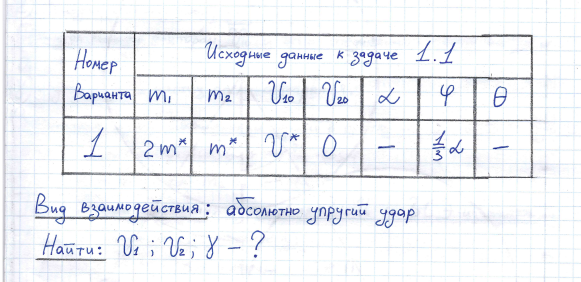 Номер Варианта
Исходные данные к задаче 1.1
m₁ m₂ υ₁₀ υ₂₀ α φ θ
1 2m* m* υ* 0 – 1/3 α –
Вид взаимодействия: абсолютно упругий удар
Найти: υ₁ ; υ₂ ; γ – ?